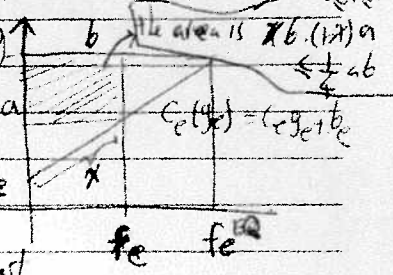 b The area is xb·(1-x)a
≤ 1/4 ab
a
C_e(g_e) = c_e g_e + b_e
x
f_e f_e^EQ